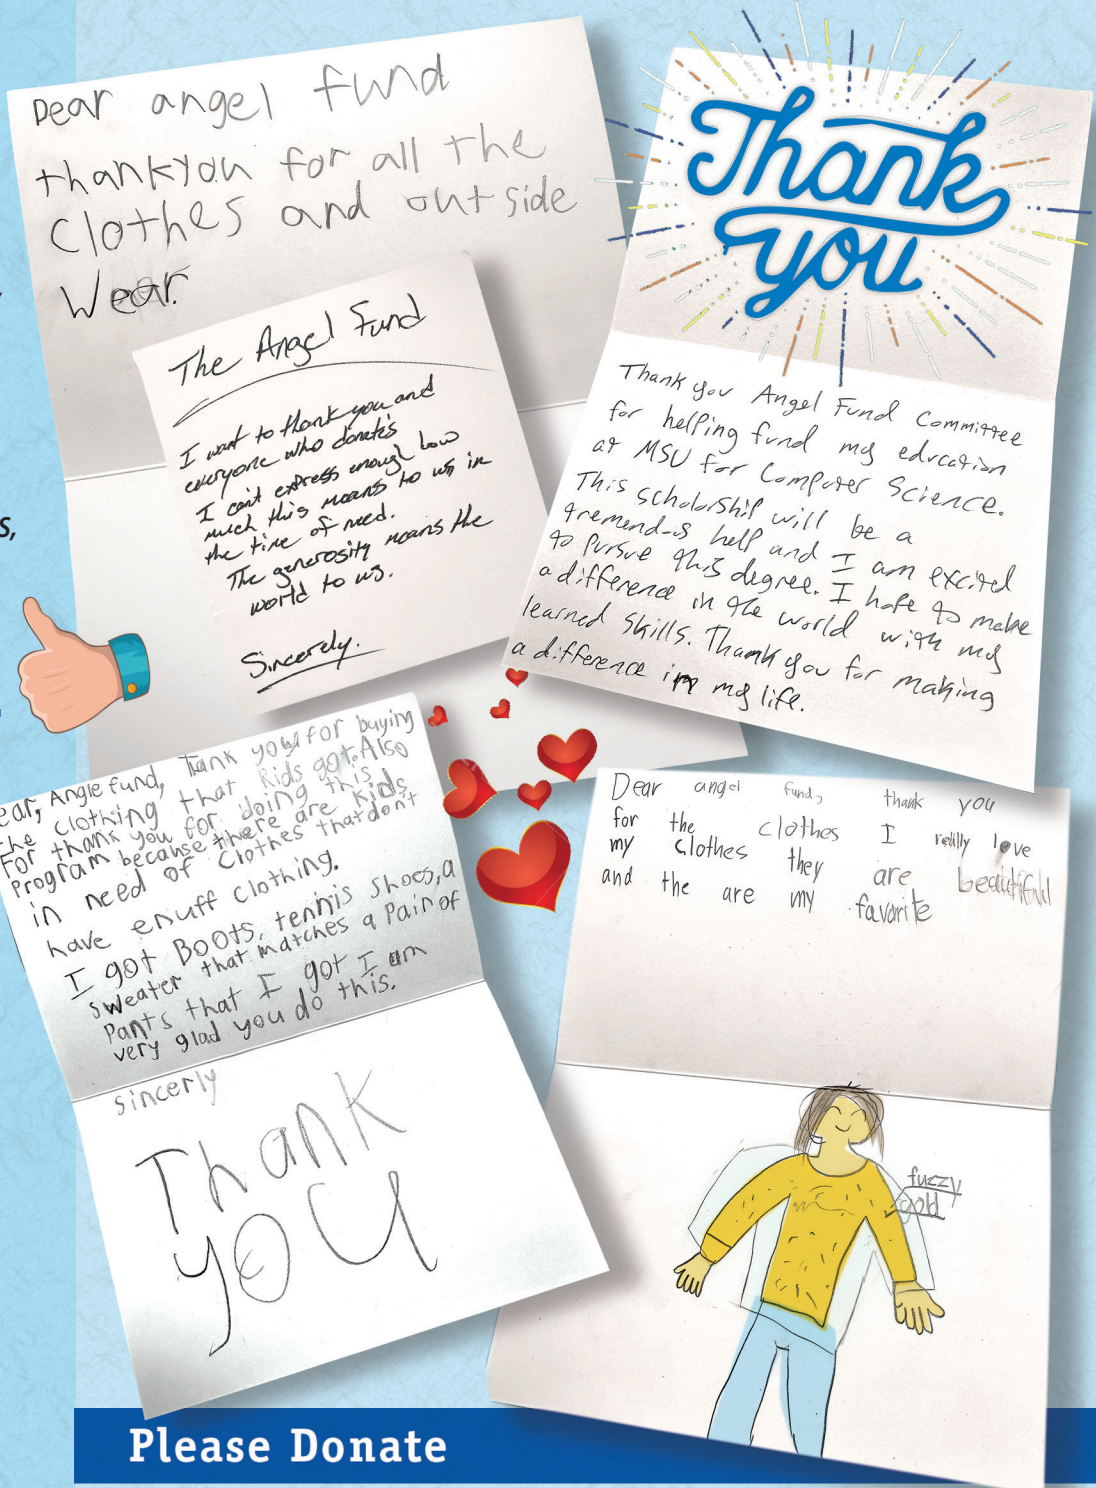 Dear angel fund
thankyou for all the
Clothes and outside
Wear.
The Angel Fund
I want to thank you and
everyone who donates
I can't express enough how
much this means to us in
the time of need.
The generosity means the
world to us.
Sincerely.
Thank
you
Thank you Angel Fund Committee
for helping fund my education
at MSU for Computer Science.
This scholarship will be a
tremendous help and I am excited
to pursue this degree. I hope to make
a difference in the world with my
learned skills. Thank you for making
a difference in my life.
s,
ear, Angle fund, Tank you for buying
the clothing that kids got. Also
For thank you for doing this
Program because there are kids
in need of Clothes that don't
have enuff clothing.
I got Boots, tennis shoes, a
sweater that matches a Pair of
Pants that I got I am
very glad you do this.
sincerly
Thank
you
Dear angel fund, thank you
for the clothes I really love
my clothes they are beautiful
and the are my favorite
fuzzy
gold
Please Donate